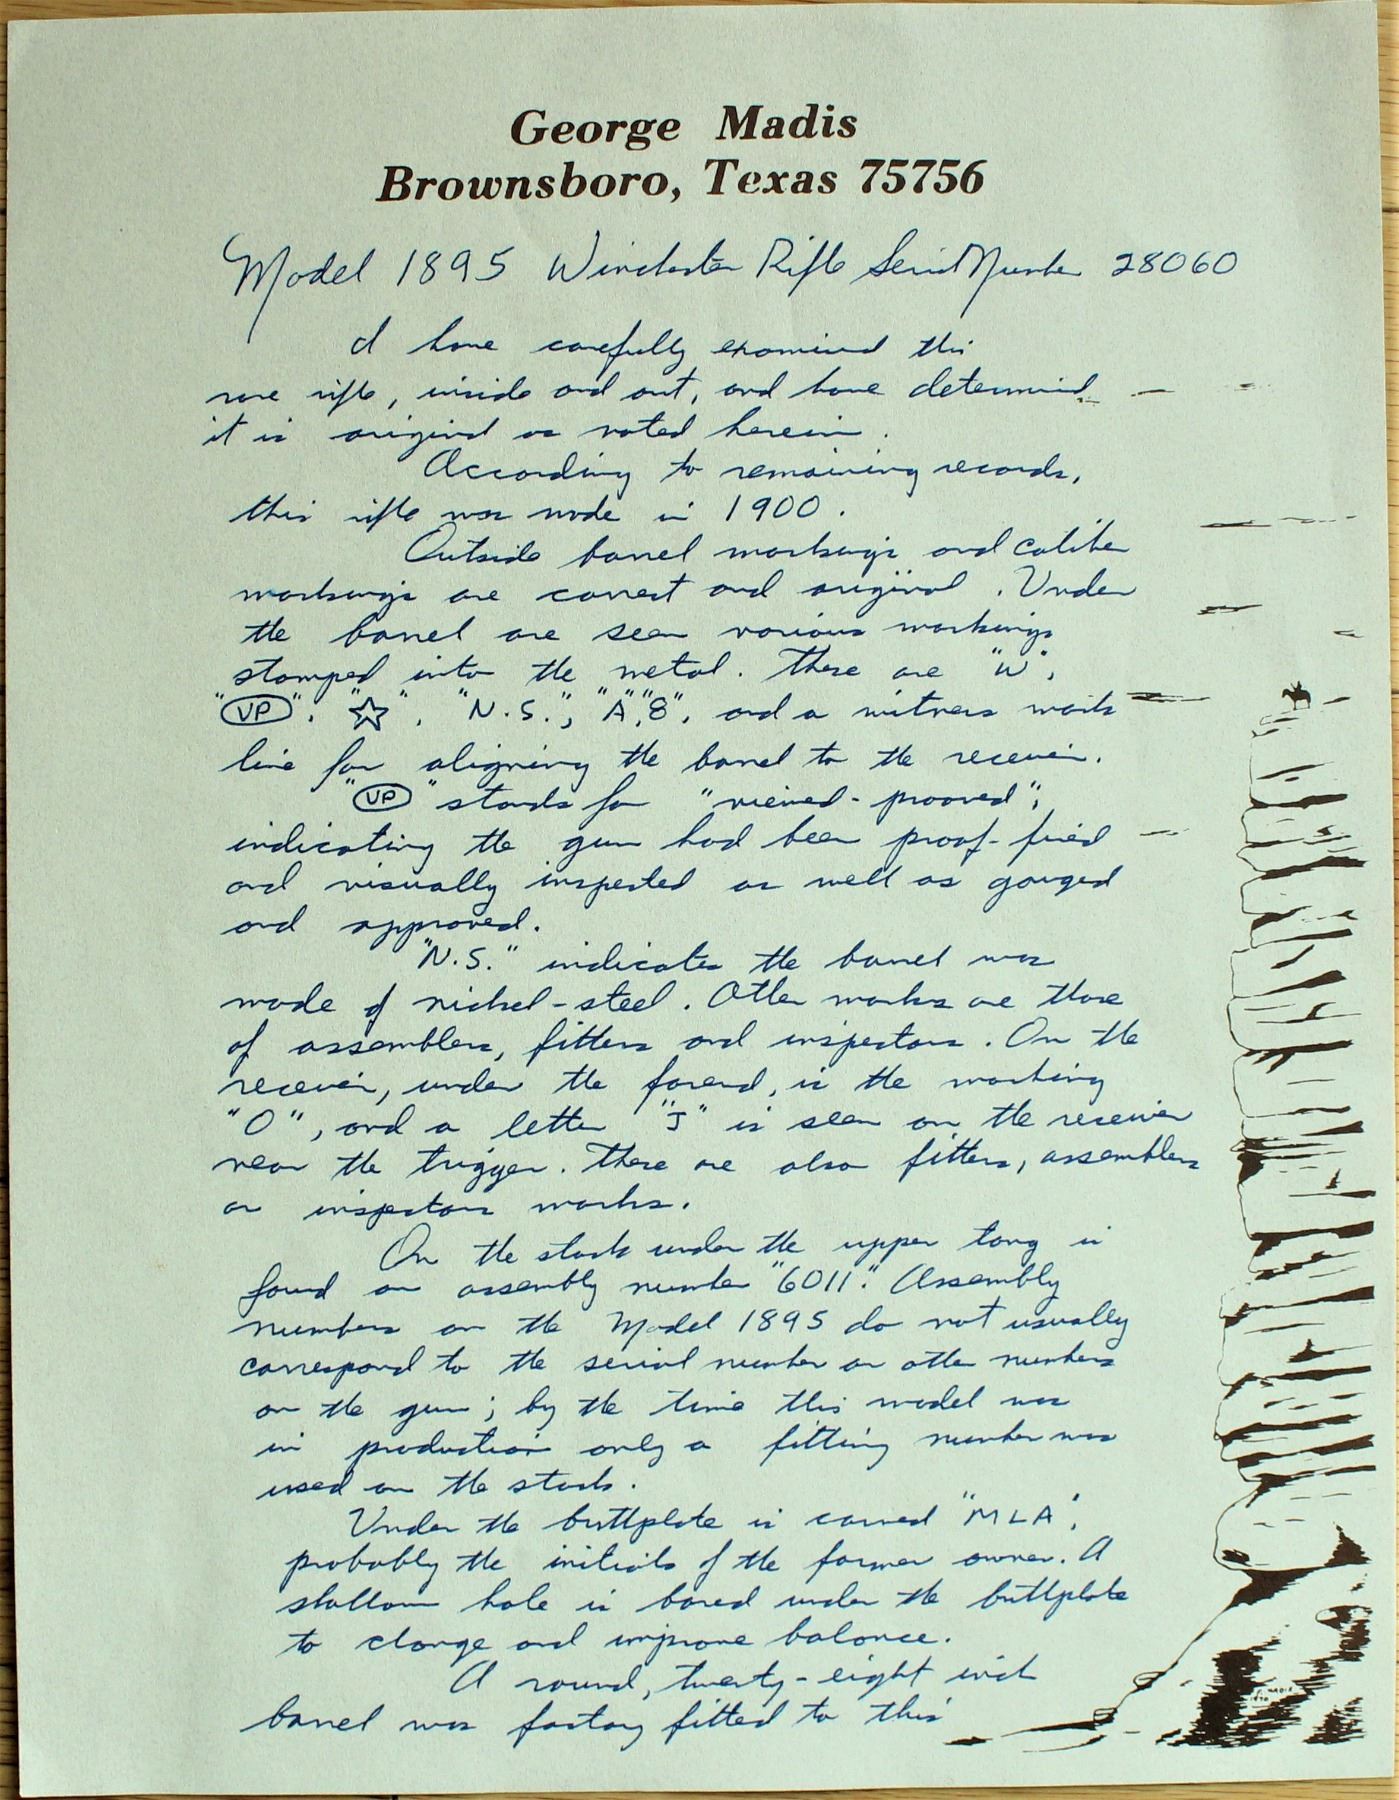 George Madis
Brownsboro, Texas 75756
Model 1895 Winchester Rifle Serial Number 28060
I have carefully examined this
rare rifle, inside and out, and have determined
it is original as noted herein.
According to remaining records,
this rifle was made in 1900.
Outside barrel markings and caliber
markings are correct and original. Under
the barrel are seen various markings
stamped into the metal. These are "W",
"VP", "☆", "N.S.", "A", "8", and a witness mark
line for aligning the barrel to the receiver.
"VP" stands for "viewed-prooved",
indicating the gun had been proof-fired
and visually inspected as well as gauged
and approved.
"N.S." indicates the barrel was
made of nickel-steel. Other marks are those
of assemblers, fitters and inspectors. On the
receiver, under the forend, is the marking
"O", and a letter "J" is seen on the receiver
near the trigger. These are also fitters, assemblers
or inspectors marks.
On the stock under the upper tang is
found an assembly number "6011". Assembly
numbers on the Model 1895 do not usually
correspond to the serial number or other numbers
on the gun; by the time this model was
in production only a fitting number was
used on the stock.
Under the buttplate is carved "MLA",
probably the initials of the former owner. A
shallow hole is bored under the buttplate
to change and improve balance.
A round, twenty-eight inch
barrel was factory fitted to this